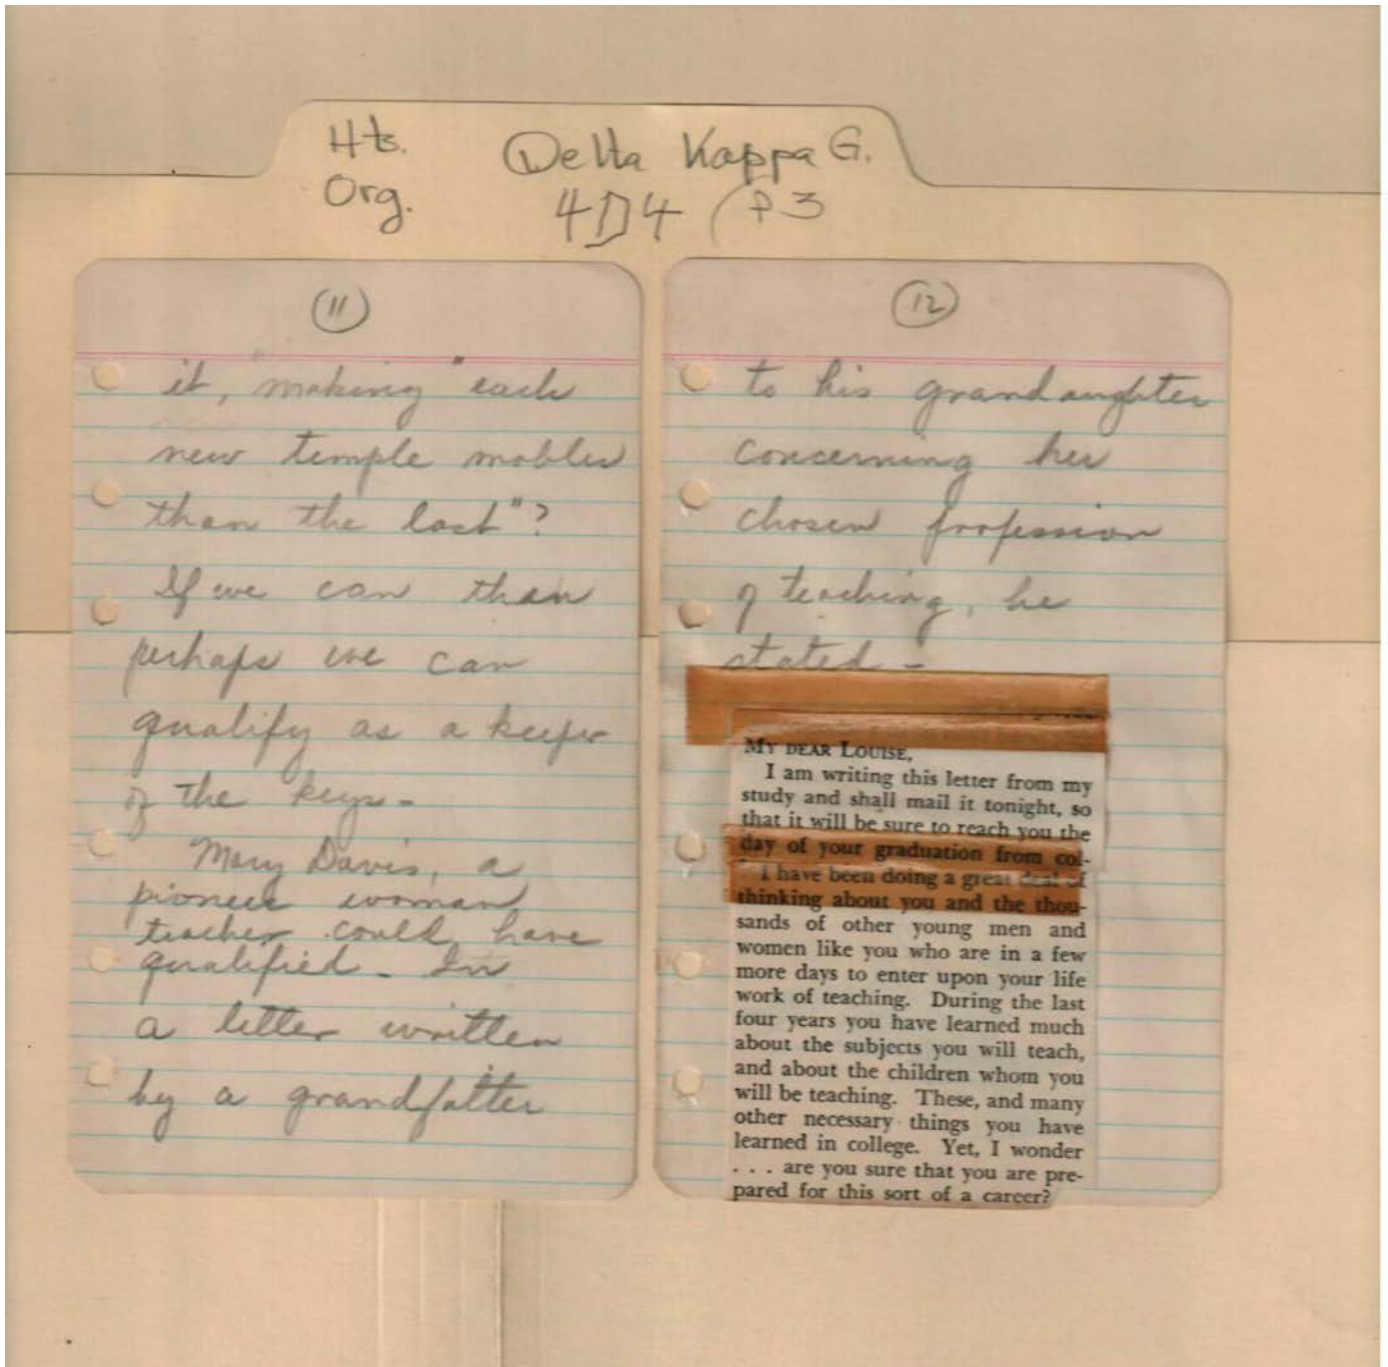 Hts. Delta Kappa G.
Org. 4D4 (P3
(11)
it, "making" each
new temple nobler
than the last"?
If we can than
perhaps we can
qualify as a keeper
of the keys-
Mary Davis, a
pioneer woman
teacher could have
qualified. In
a letter written
by a grandfatter
(12)
to his grandaughter
concerning her
chosen profession
of teaching, he
stated -
MY DEAR LOUISE,
I am writing this letter from my
study and shall mail it tonight, so
that it will be sure to reach you the
day of your graduation from col-
I have been doing a great deal of
thinking about you and the thou-
sands of other young men and
women like you who are in a few
more days to enter upon your life
work of teaching. During the last
four years you have learned much
about the subjects you will teach,
and about the children whom you
will be teaching. These, and many
other necessary things you have
learned in college. Yet, I wonder
. . . are you sure that you are pre-
pared for this sort of a career?